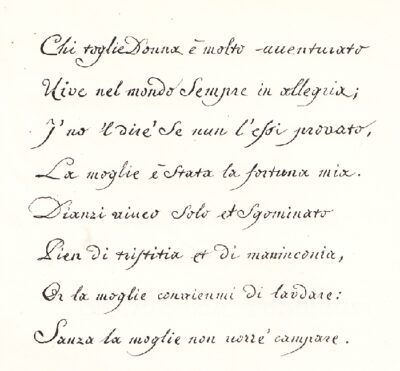 Chi toglie Donna è molto auuenturato
Uive nel mondo Sempre in allegria;
I' no 'l dire' Se nun l'essi provato,
La moglie è Stata la fortuna mia.
Dianzi viueo Solo et Sgominato
Pien di tristitia et di maninconia,
Or la moglie convienmi di laudare:
Sanza la moglie non vorre' campare.